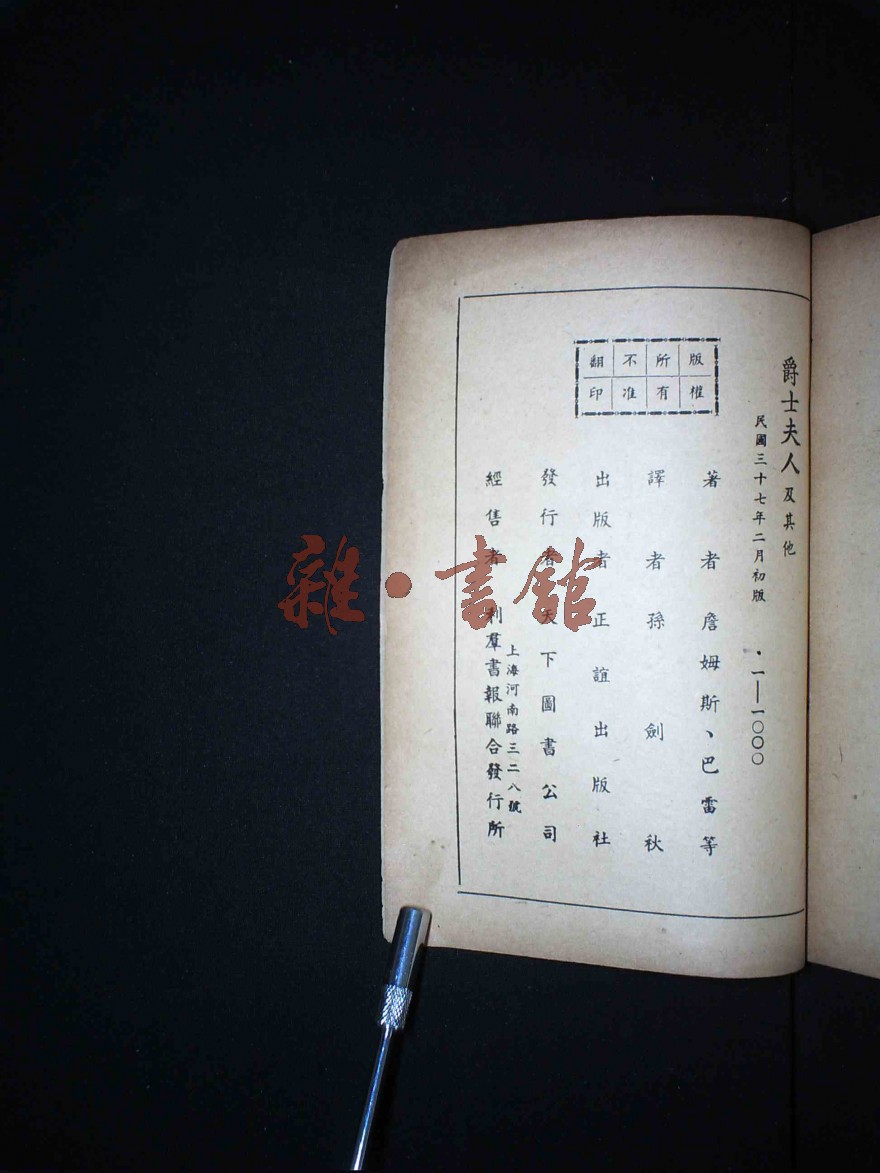 爵士夫人及其他
民國三十七年二月初版 · 一—一〇〇〇
版權所有
不准翻印
著者 詹姆斯、巴雷等
譯者 孫劍秋
出版者 正誼出版社
發行者 天下圖書公司
上海河南路三二八號
經售者 利羣書報聯合發行所
雜·書館